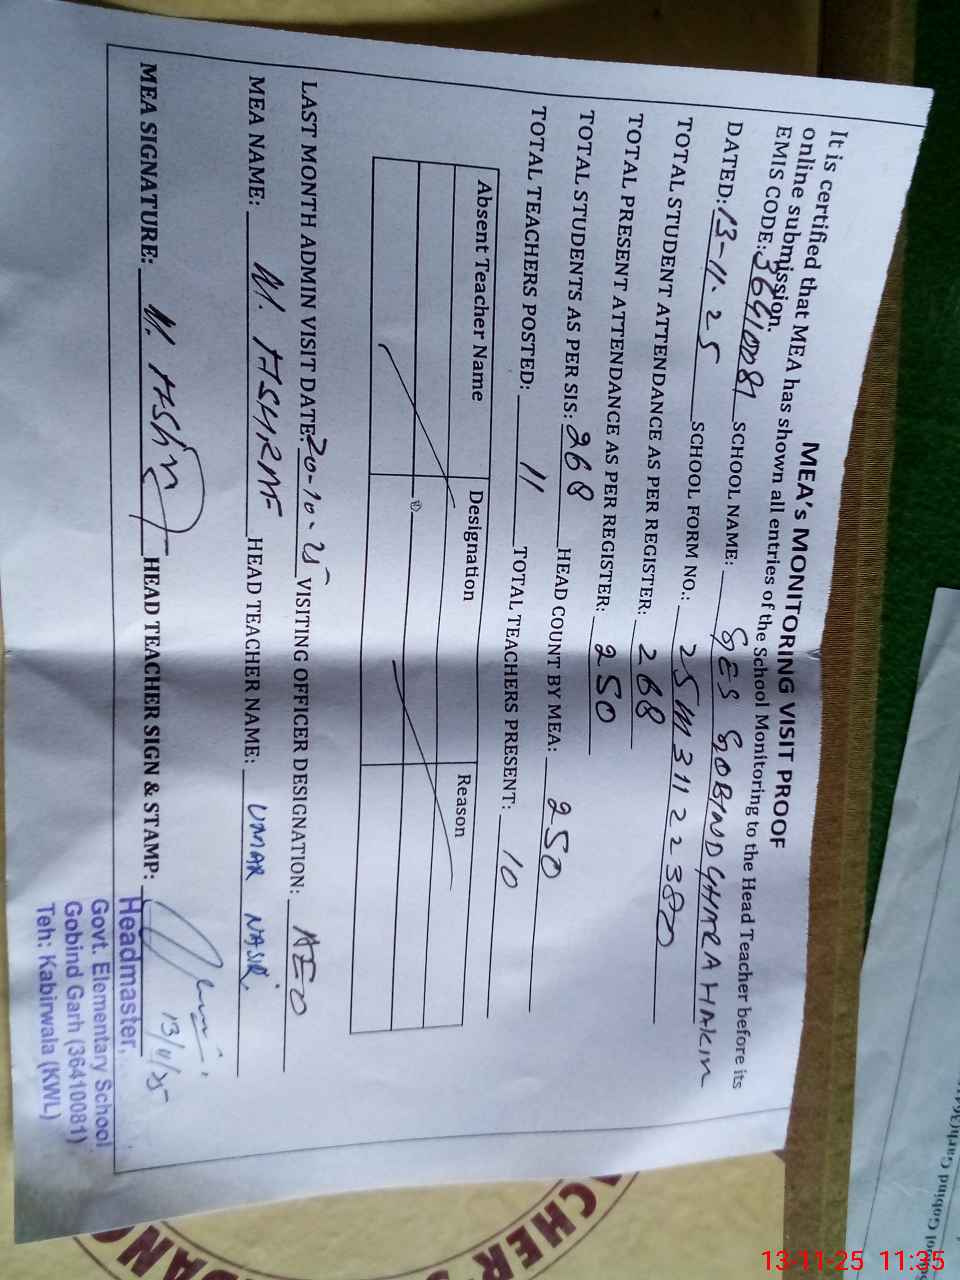 MEA's MONITORING VISIT PROOF
It is certified that MEA has shown all entries of the School Monitoring to the Head Teacher before its
online submission.
EMIS CODE: 36410081 SCHOOL NAME: GES GOBIND GHARA HAKIM
DATED: 13-11-25 SCHOOL FORM NO.: 25M31122380
TOTAL STUDENT ATTENDANCE AS PER REGISTER: 268
TOTAL PRESENT ATTENDANCE AS PER REGISTER: 250
TOTAL STUDENTS AS PER SIS: 268 HEAD COUNT BY MEA: 250
TOTAL TEACHERS POSTED: 11 TOTAL TEACHERS PRESENT: 10
Absent Teacher Name Designation Reason
LAST MONTH ADMIN VISIT DATE: 20-10-25 VISITING OFFICER DESIGNATION: AEO
MEA NAME: M. ASHRAF HEAD TEACHER NAME: UMAR NASIR.
MEA SIGNATURE: M. Ash HEAD TEACHER SIGN & STAMP:
13/11/25
Headmaster,
Govt. Elementary School
Gobind Garh (36410081)
Teh: Kabirwala (KWL)
13-11-25 11:35